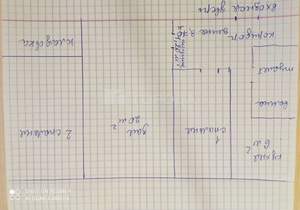 кухня
6 м²
1
спальня
зал
20 м²
2 спальня
ванна
туалет
коридор
кладовка
входная дверь